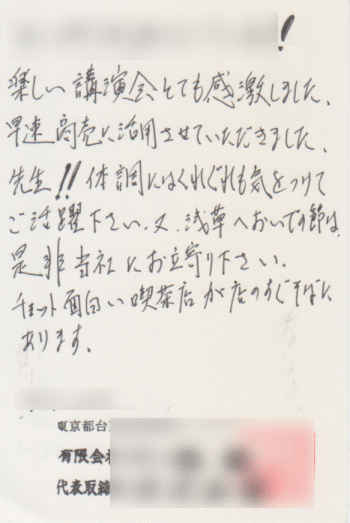 !
楽しい講演会とても感激しました、
早速商売に活用させていただきました、
先生!!体調にはくれぐれも気をつけて
ご活躍下さい、又、浅草へおいでの節は、
是非当社にお立寄り下さい、
チョット面白い喫茶店が店のすぐそばに
あります。
東京都台
有限会
代表取締